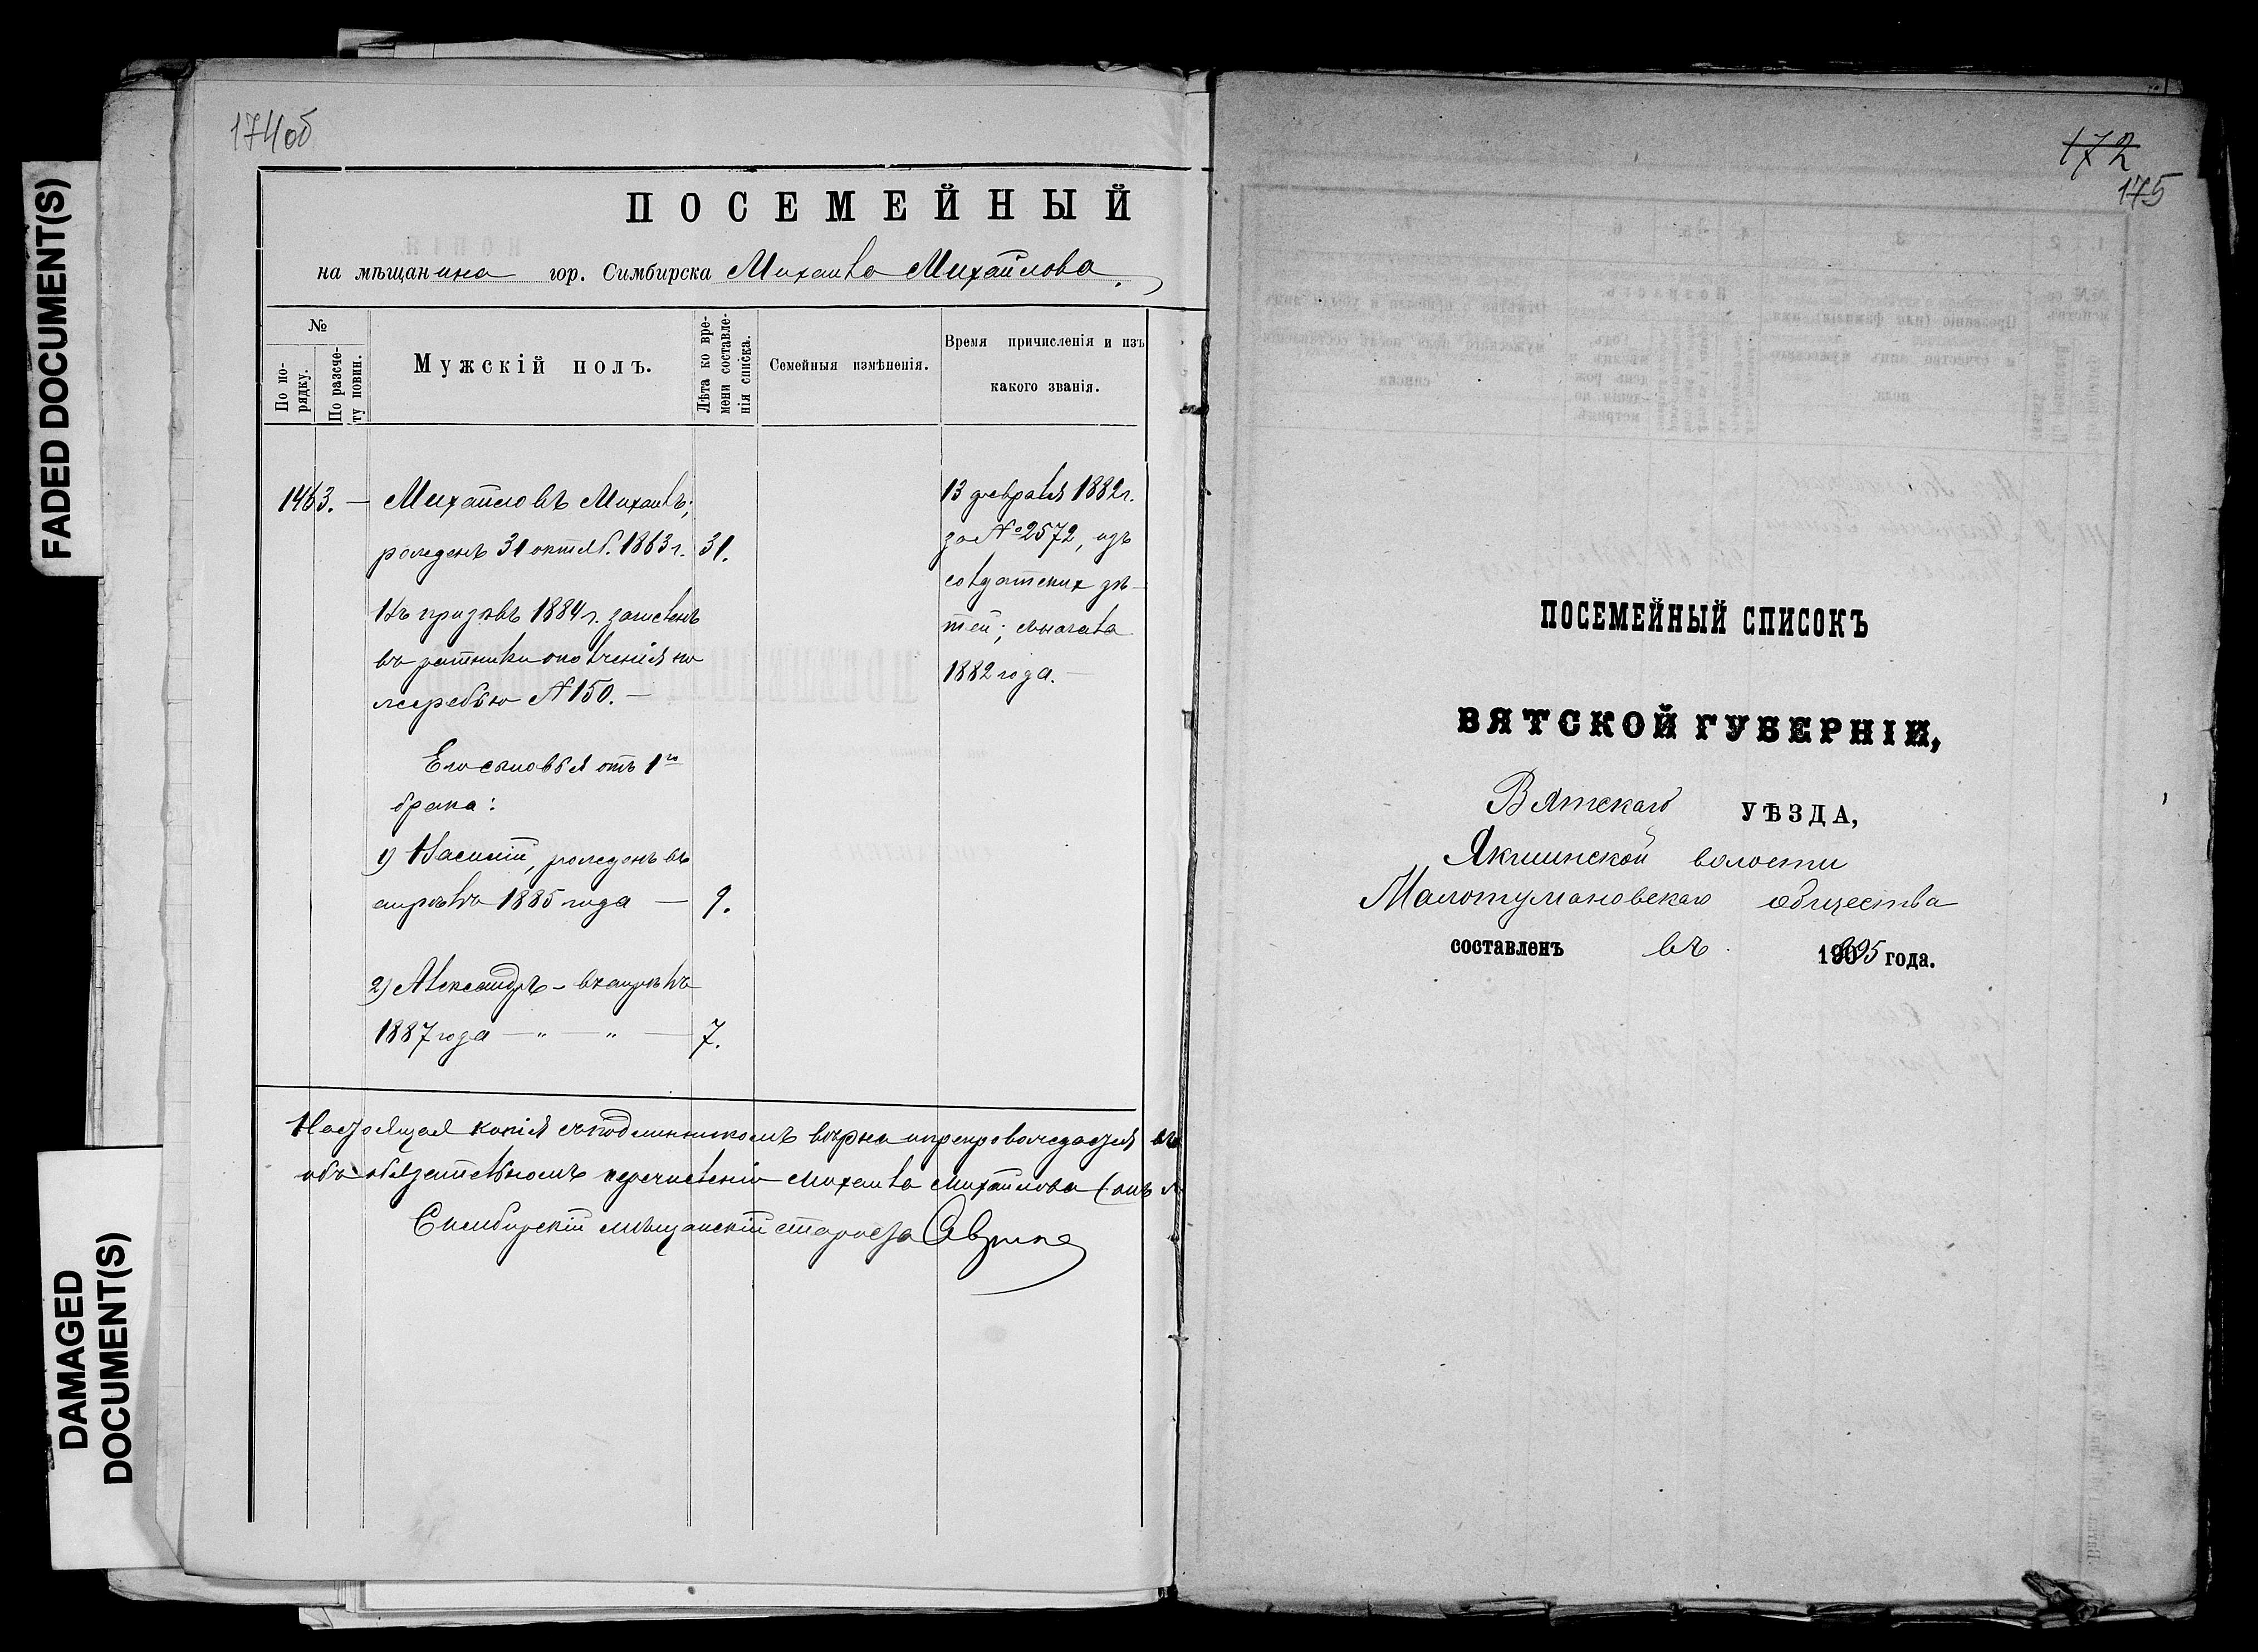 FADED DOCUMENT(S)
DAMAGED
DOCUMENT(S)
174об
ПОСЕМЕЙНЫЙ
на мѣщанина гор. Симбирска Михаила Михайлова,
№
По по-
рядку.
По разсче-
ту повин.
Мужскій полъ.
Лѣта ко вре-
мени составле-
нія списка.
Семейныя измѣненія.
Время причисленія и изъ
какого званія.
1463. — Михайловъ Михаилъ;
рожденъ 31 октяб. 1863 г. 31.
Въ призывъ 1884 г. зачисленъ
въ ратники ополченія по
жеребью № 150. —
Его сыновья отъ 1го
брака:
1) Василій, рожденъ въ
апрѣлѣ 1885 года — 9.
2) Александръ – въ апрѣлѣ
1887 года — „ — „ — 7.
13 февраля 1882 г.
за № 2572, изъ
солдатских дѣ-
тей; съ начала
1882 года. —
Настоящая копія съ подлинникомъ вѣрна и препровождается въ
объ обязательномъ перечисленіи Михаила Михайлова (онъ
Симбирскій мѣщанскій староста
172
175
ПОСЕМЕЙНЫЙ СПИСОКЪ
ВЯТСКОЙ ГУБЕРНІИ,
Вятскаго УѢЗДА,
Якшинской волости
Малотумановскаго общества
составленъ въ 1895 года.